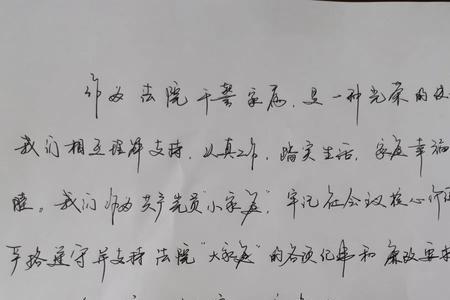 作为法院干警家属，是一种光荣的
我们相互理解支持，认真工作，踏实生活，家庭幸福
睦。我们作为共产党员"小家庭"，牢记社会主义核心价
严格遵守并支持法院"大家庭"的各项纪律和廉政要求